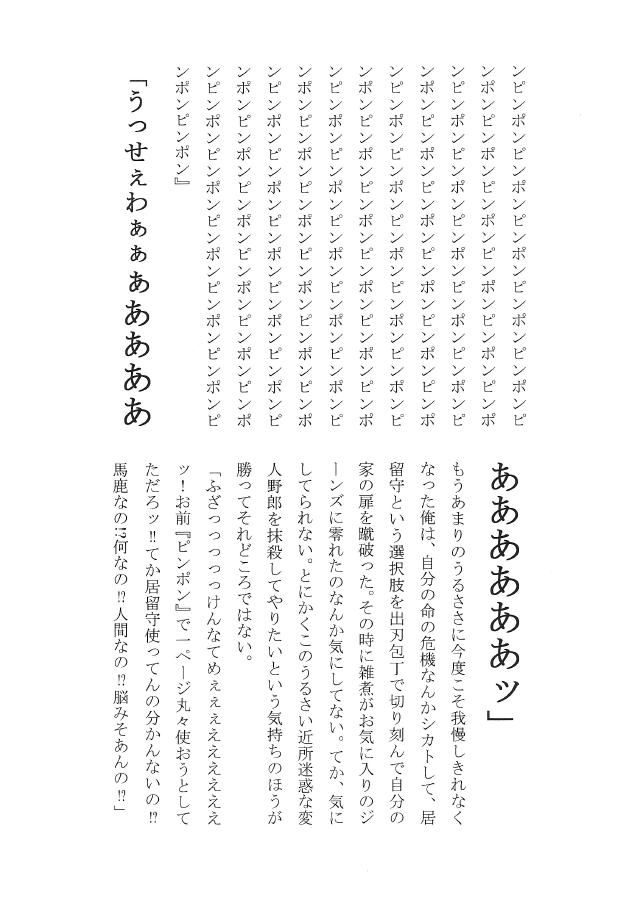 ンピンポンピンポンピンポンピンポンピンポンピ
ンポンピンポンピンポンピンポンピンポンピンポ
ンピンポンピンポンピンポンピンポンピンポンピ
ンポンピンポンピンポンピンポンピンポンピンポ
ンピンポンピンポンピンポンピンポンピンポンピ
ンポンピンポンピンポンピンポンピンポンピンポ
ンピンポンピンポンピンポンピンポンピンポンピ
ンポンピンポンピンポンピンポンピンポンピンポ
ンピンポンピンポンピンポンピンポンピンポンピ
ンポンピンポンピンポンピンポンピンポンピンポ
ンピンポンピンポンピンポンピンポンピンポンピ
ンポンピンポン』
「うっせぇわぁぁぁああああ
ああああああッ」
もうあまりのうるささに今度こそ我慢しきれなく
なった俺は、自分の命の危機なんかシカトして、居
留守という選択肢を出刃包丁で切り刻んで自分の
家の扉を蹴破った。その時に雑煮がお気に入りのジ
ーンズに零れたのなんか気にしてない。てか、気に
してられない。とにかくこのうるさい近所迷惑な変
人野郎を抹殺してやりたいという気持ちのほうが
勝ってそれどころではない。
「ふざっっっっっけんなてめぇぇぇえええええええ
ッ！お前『ピンポン』で一ページ丸々使おうとして
ただろッ‼てか居留守使ってんの分かんないの⁉
馬鹿なの⁉何なの⁉人間なの⁉脳みそあんの⁉」